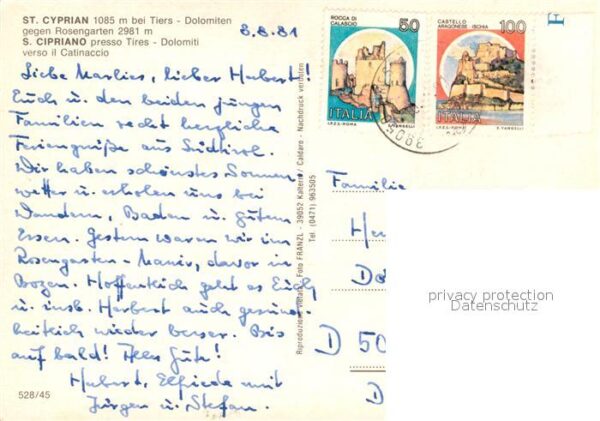 ST. CYPRIAN 1085 m bei Tiers - Dolomiten
gegen Rosengarten 2981 m
S. CIPRIANO presso Tires - Dolomiti
verso il Catinaccio
8.8.81
Liebe Marlies, lieber Hubert!
Euch u. den beiden jungen
Familien recht herzliche
Feriengrüße aus Südtirol.
Wir haben schönstes Sonnen-
wetter u. erholen uns bei
Wandern, Baden u. gutem
Essen. Gestern waren wir im
Rosengarten-
davor in
Bozen. Hoffentlich geht es Euch
u. insb. Herbert auch gesund-
heitlich wieder besser. Bis
auf bald! Alles Gute!
Hubert, Elfriede mit
Jürgen u. Stefan.
528/45
Riproduzione vietata - Foto FRANZL - 39052 Kaltern / Caldaro - Nachdruck verboten
Tel (0471) 963505
ROCCA DI
CALASCIO
50
ITALIA
I.P.Z.S.-ROMA
E.VANGELLI
CASTELLO
ARAGONESE-ISCHIA
100
ITALIA
I.P.Z.S.-ROMA
E.VANGELLI
39050
Familie
He
D 50
D
privacy protection
Datenschutz